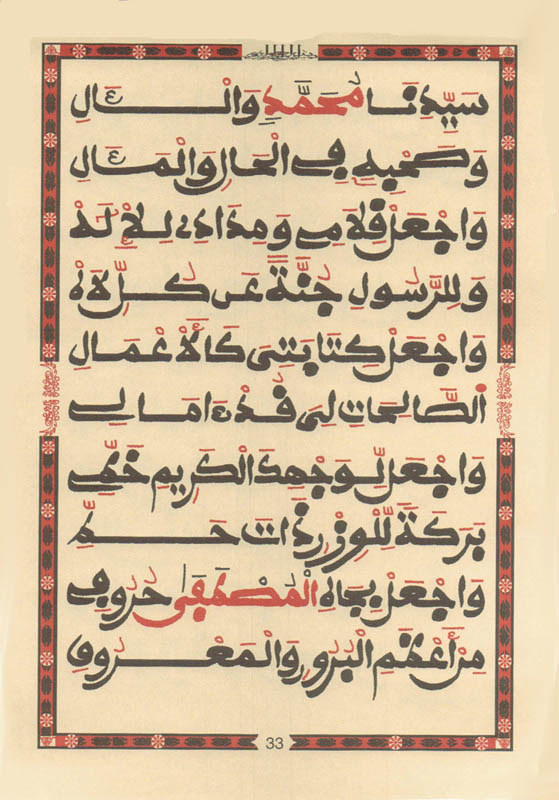 سَيِّدِنَا مُحَمَّدٍ وَالْآلِ
وَصَحْبِهِ فِي الْحَالِ وَالْمَآلِ
وَاجْعَلْ قَلَامِي وَمِدَادِي لِلْإِلَهْ
وَلِلرَّسُولِ جُنَّةً عَن كُلِّ لَاهْ
وَاجْعَلْ كِتَابَتِي كَالْأَعْمَالِ
الصَّالِحَاتِ لِي قُدْ ءَامَالِي
وَاجْعَل لِّوَجْهِكَ الْكَرِيمِ خَطِّي
بَرَكَةً لِّلْوِزْرِ ذَاتَ حَطِّ
وَاجْعَلْ بِجَاهِ الْمُصْطَفَى حُرُوفِي
مِنْ أَعْظَمِ الْبُرُورِ وَالْمَعْرُوفِ
33